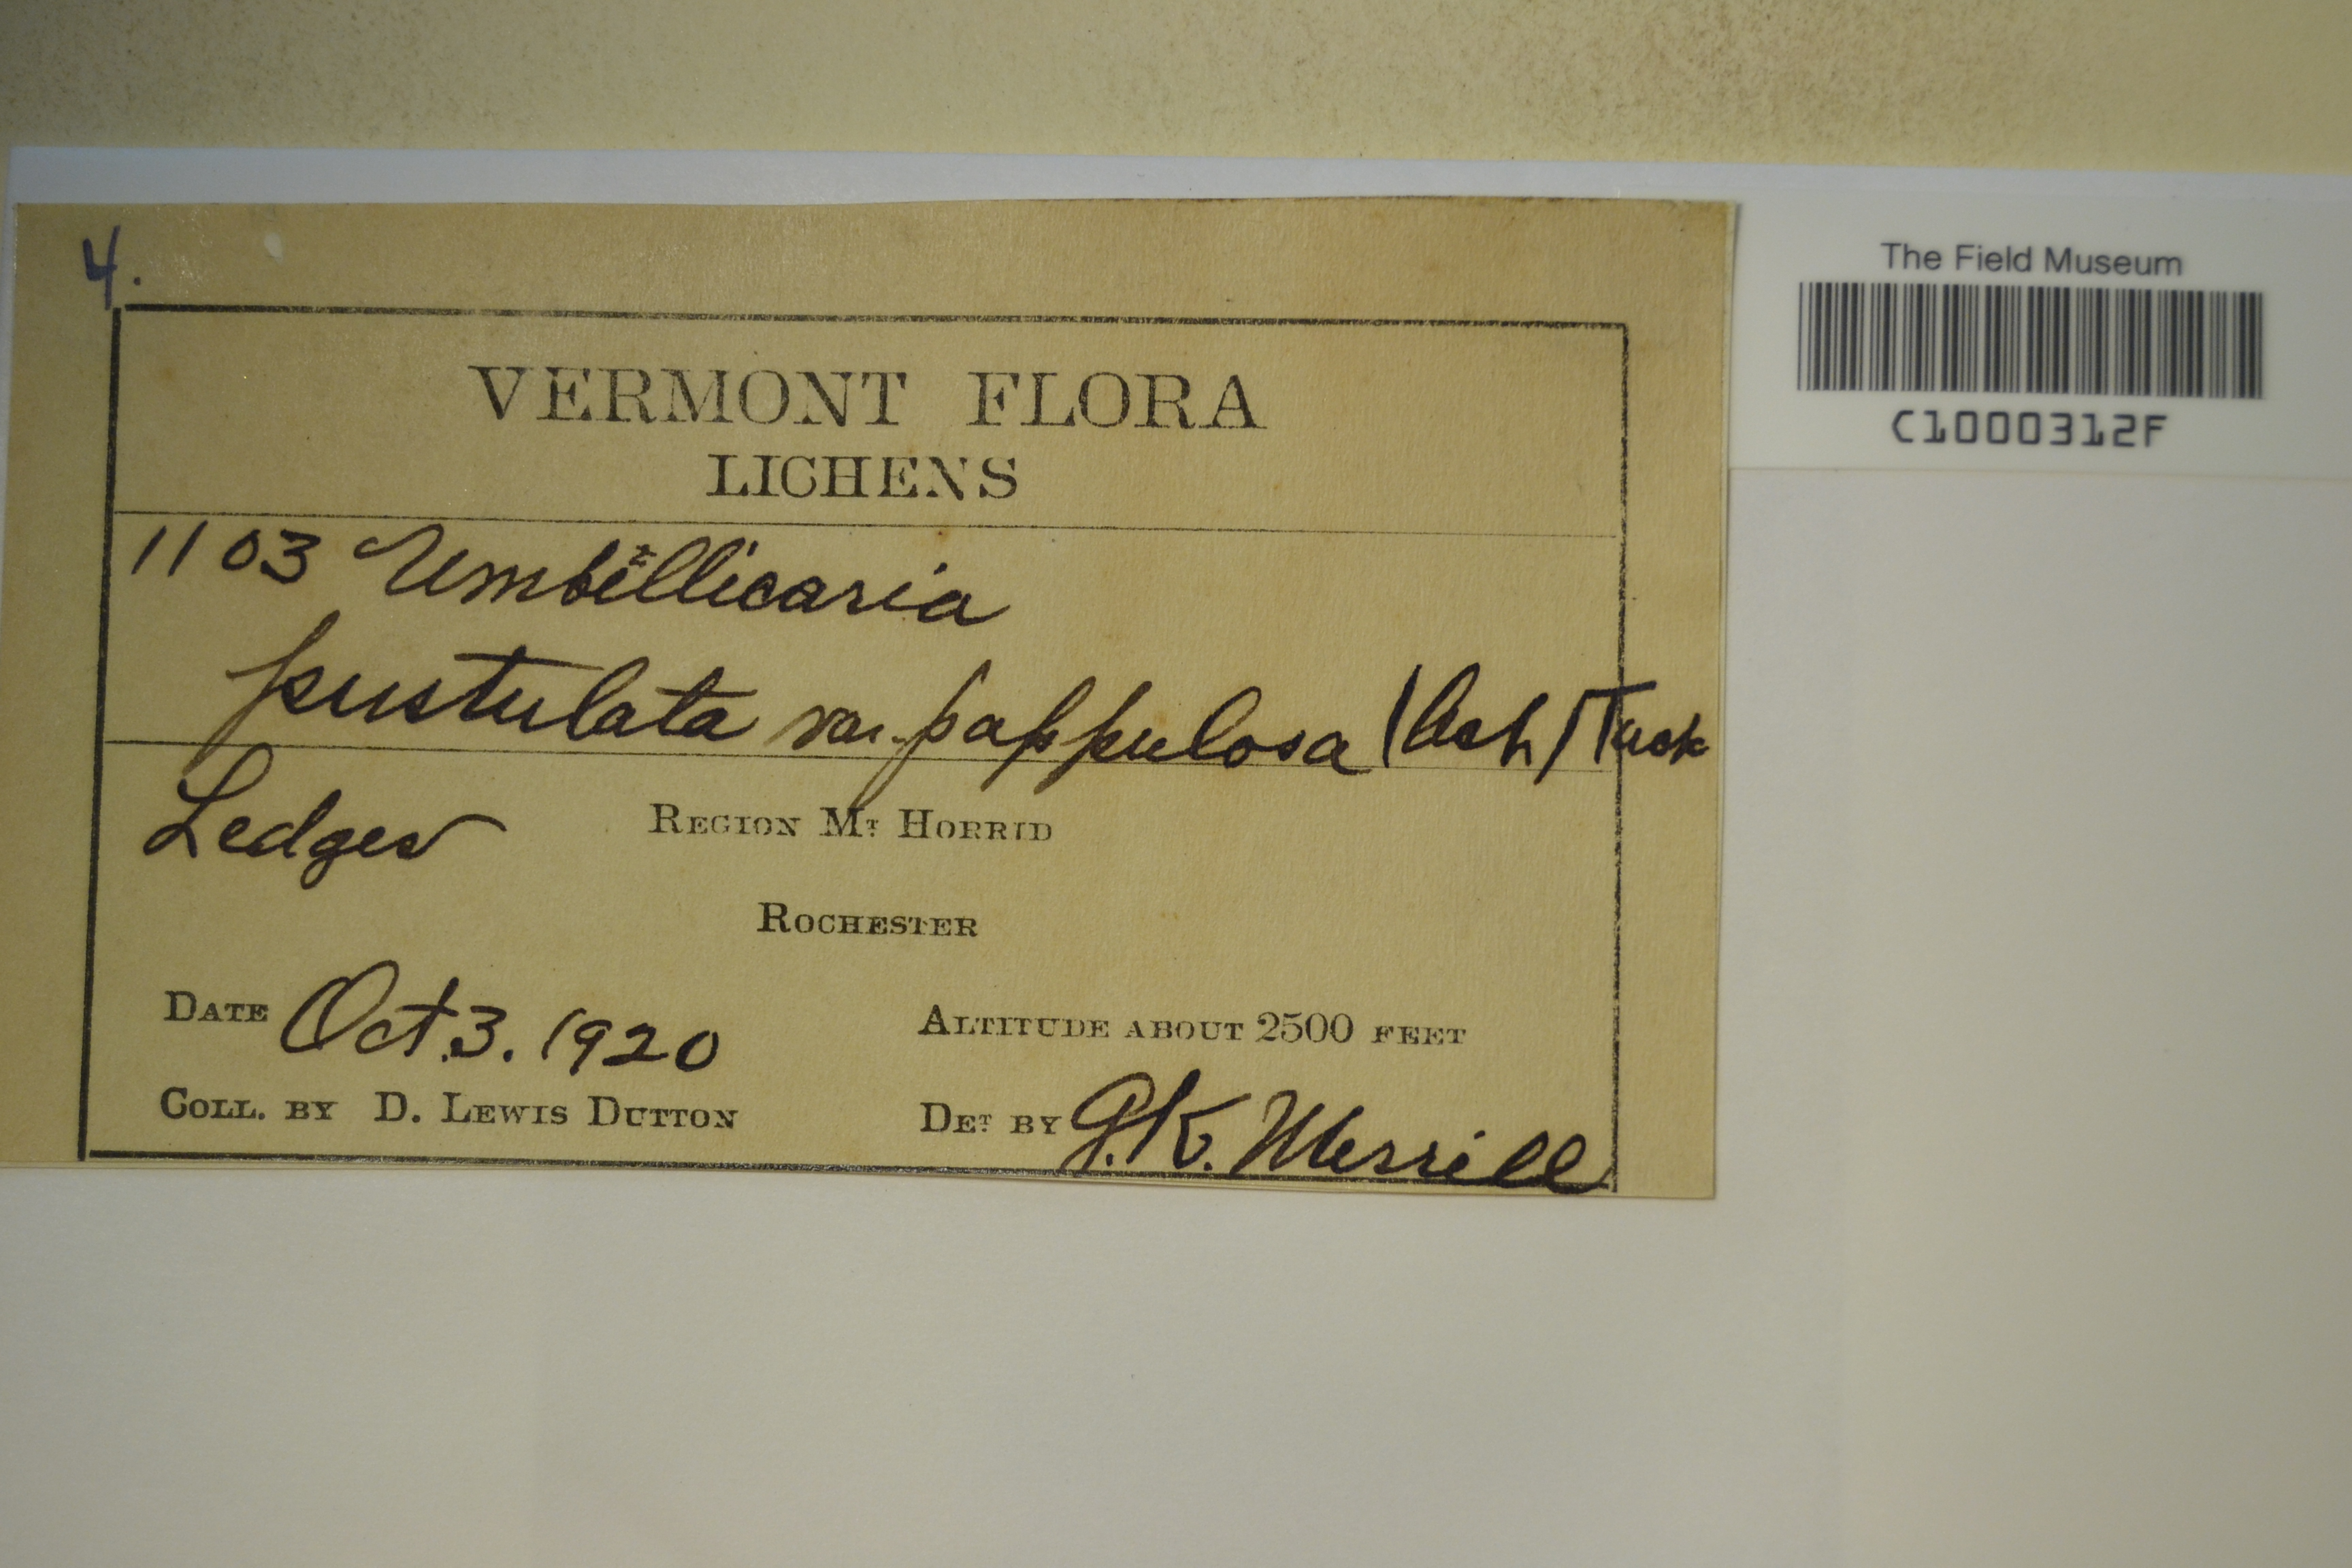 4.
The Field Museum
C1000312F
VERMONT FLORA
LICHENS
1103 Umbillicaria
pustulata var. pappulosa (Ach) Tuck
Ledges REGION MT HORRID
ROCHESTER
DATE Oct. 3. 1920 ALTITUDE ABOUT 2500 FEET
COLL. BY D. LEWIS DUTTON DET BY G.K. Merrill